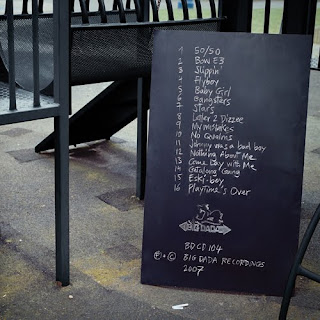 1 50/50
2 Bow E3
3 Slippin'
4 Flyboy
5 Baby Girl
6 Gangsters
7 Stars
8 Letter 2 Dizzee
9 My mistakes
10 No Qualms
11 Johnny was a bad boy
12 Nothing About Me
13 Come Day with Me
14 Getalong Gang
15 Eski-boy
16 Playtime's Over
BIG DADA
BDCD 104
Ⓟ + © BIG DADA RECORDINGS
2007